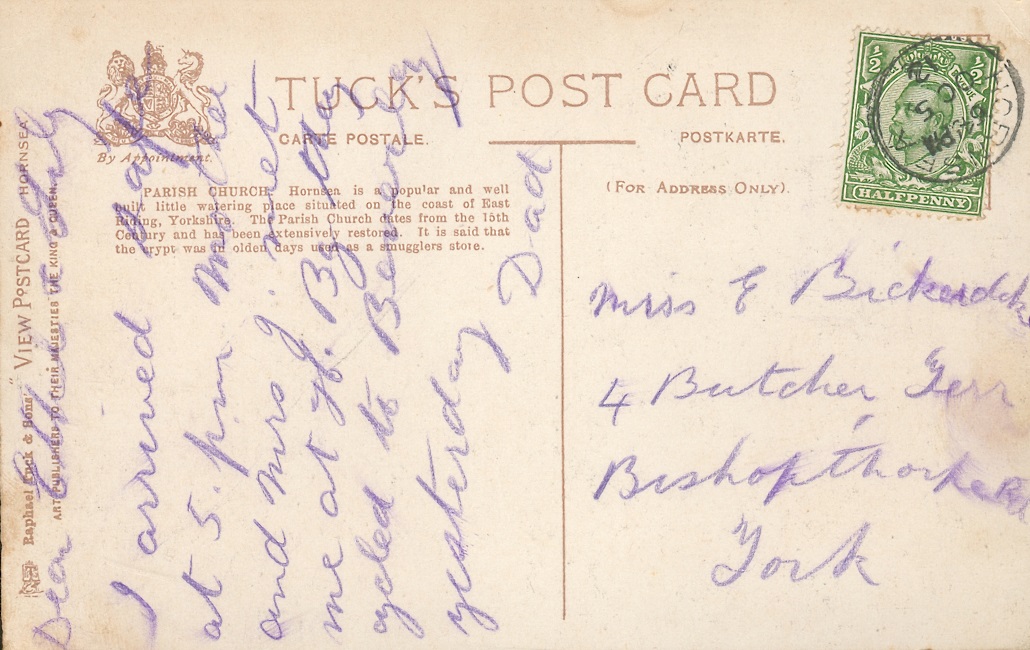 TUCK'S POST CARD
CARTE POSTALE.
POSTKARTE.
By Appointment.
(FOR ADDRESS ONLY).
PARISH CHURCH. Hornsea is a popular and well
built little watering place situated on the coast of East
Riding, Yorkshire. The Parish Church dates from the 15th
Century and has been extensively restored. It is said that
the crypt was in olden days used as a smugglers store.
Raphael Tuck & Sons' "VIEW" POSTCARD HORNSEA
ART PUBLISHERS TO THEIR MAJESTIES THE KING & QUEEN.
Dear
I arrived safe
at 5. pm Mr
and Mrs J. met
me at
cycled to
yesterday
Dad
½ ½
HALFPENNY
Miss E
4 Butcher Terr
Bishopthorpe Rd
York